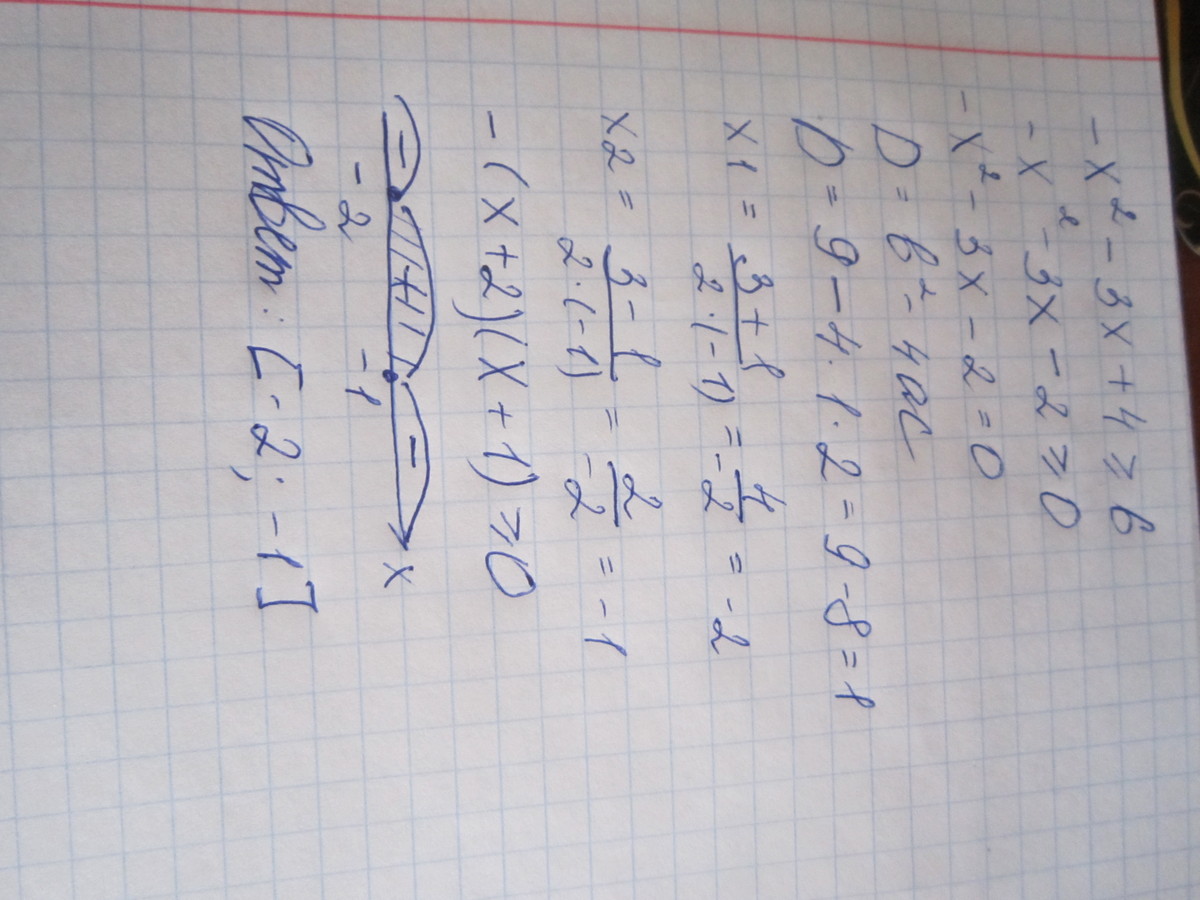 -x² - 3x + 4 ≥ 6
-x² - 3x - 2 ≥ 0
-x² - 3x - 2 = 0
D = b² - 4ac
D = 9 - 4·1·2 = 9 - 8 = 1
x1 = (3 + 1)/(2·(-1)) = 4/-2 = -2
x2 = (3 - 1)/(2·(-1)) = 2/-2 = -1
-(x + 2)(x + 1) ≥ 0
- + -
-2 -1 x
Ответ: [-2; -1]